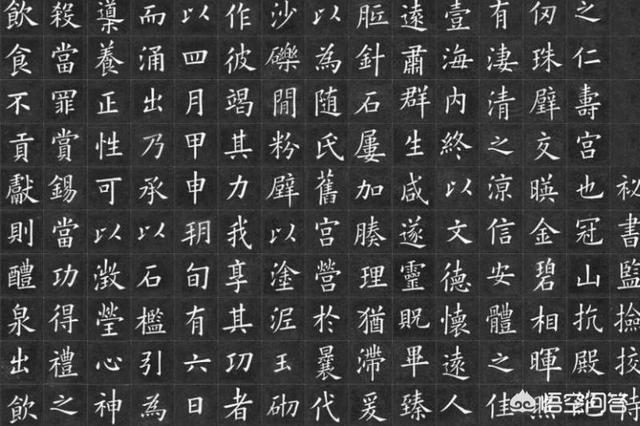 祕書監撿挍侍
之仁壽宮也冠山抗殿
仞珠壁交暎金碧相暉照
有淒清之涼信安體之佳
壹海內終以文德懷遠人
遠肅群生咸遂靈貺畢臻
胝針石屢加腠理猶滯爰
以為随氏舊宮營於曩代
沙礫閒粉壁以塗泥玉砌
作彼竭其力我享其功者
以四月甲申朔旬有六日
而涌出乃承以石檻引為
導養正性可以澂瑩心神
殺當罪賞錫當功得禮之
飲食不貢獻則醴泉出飲
悟空问答